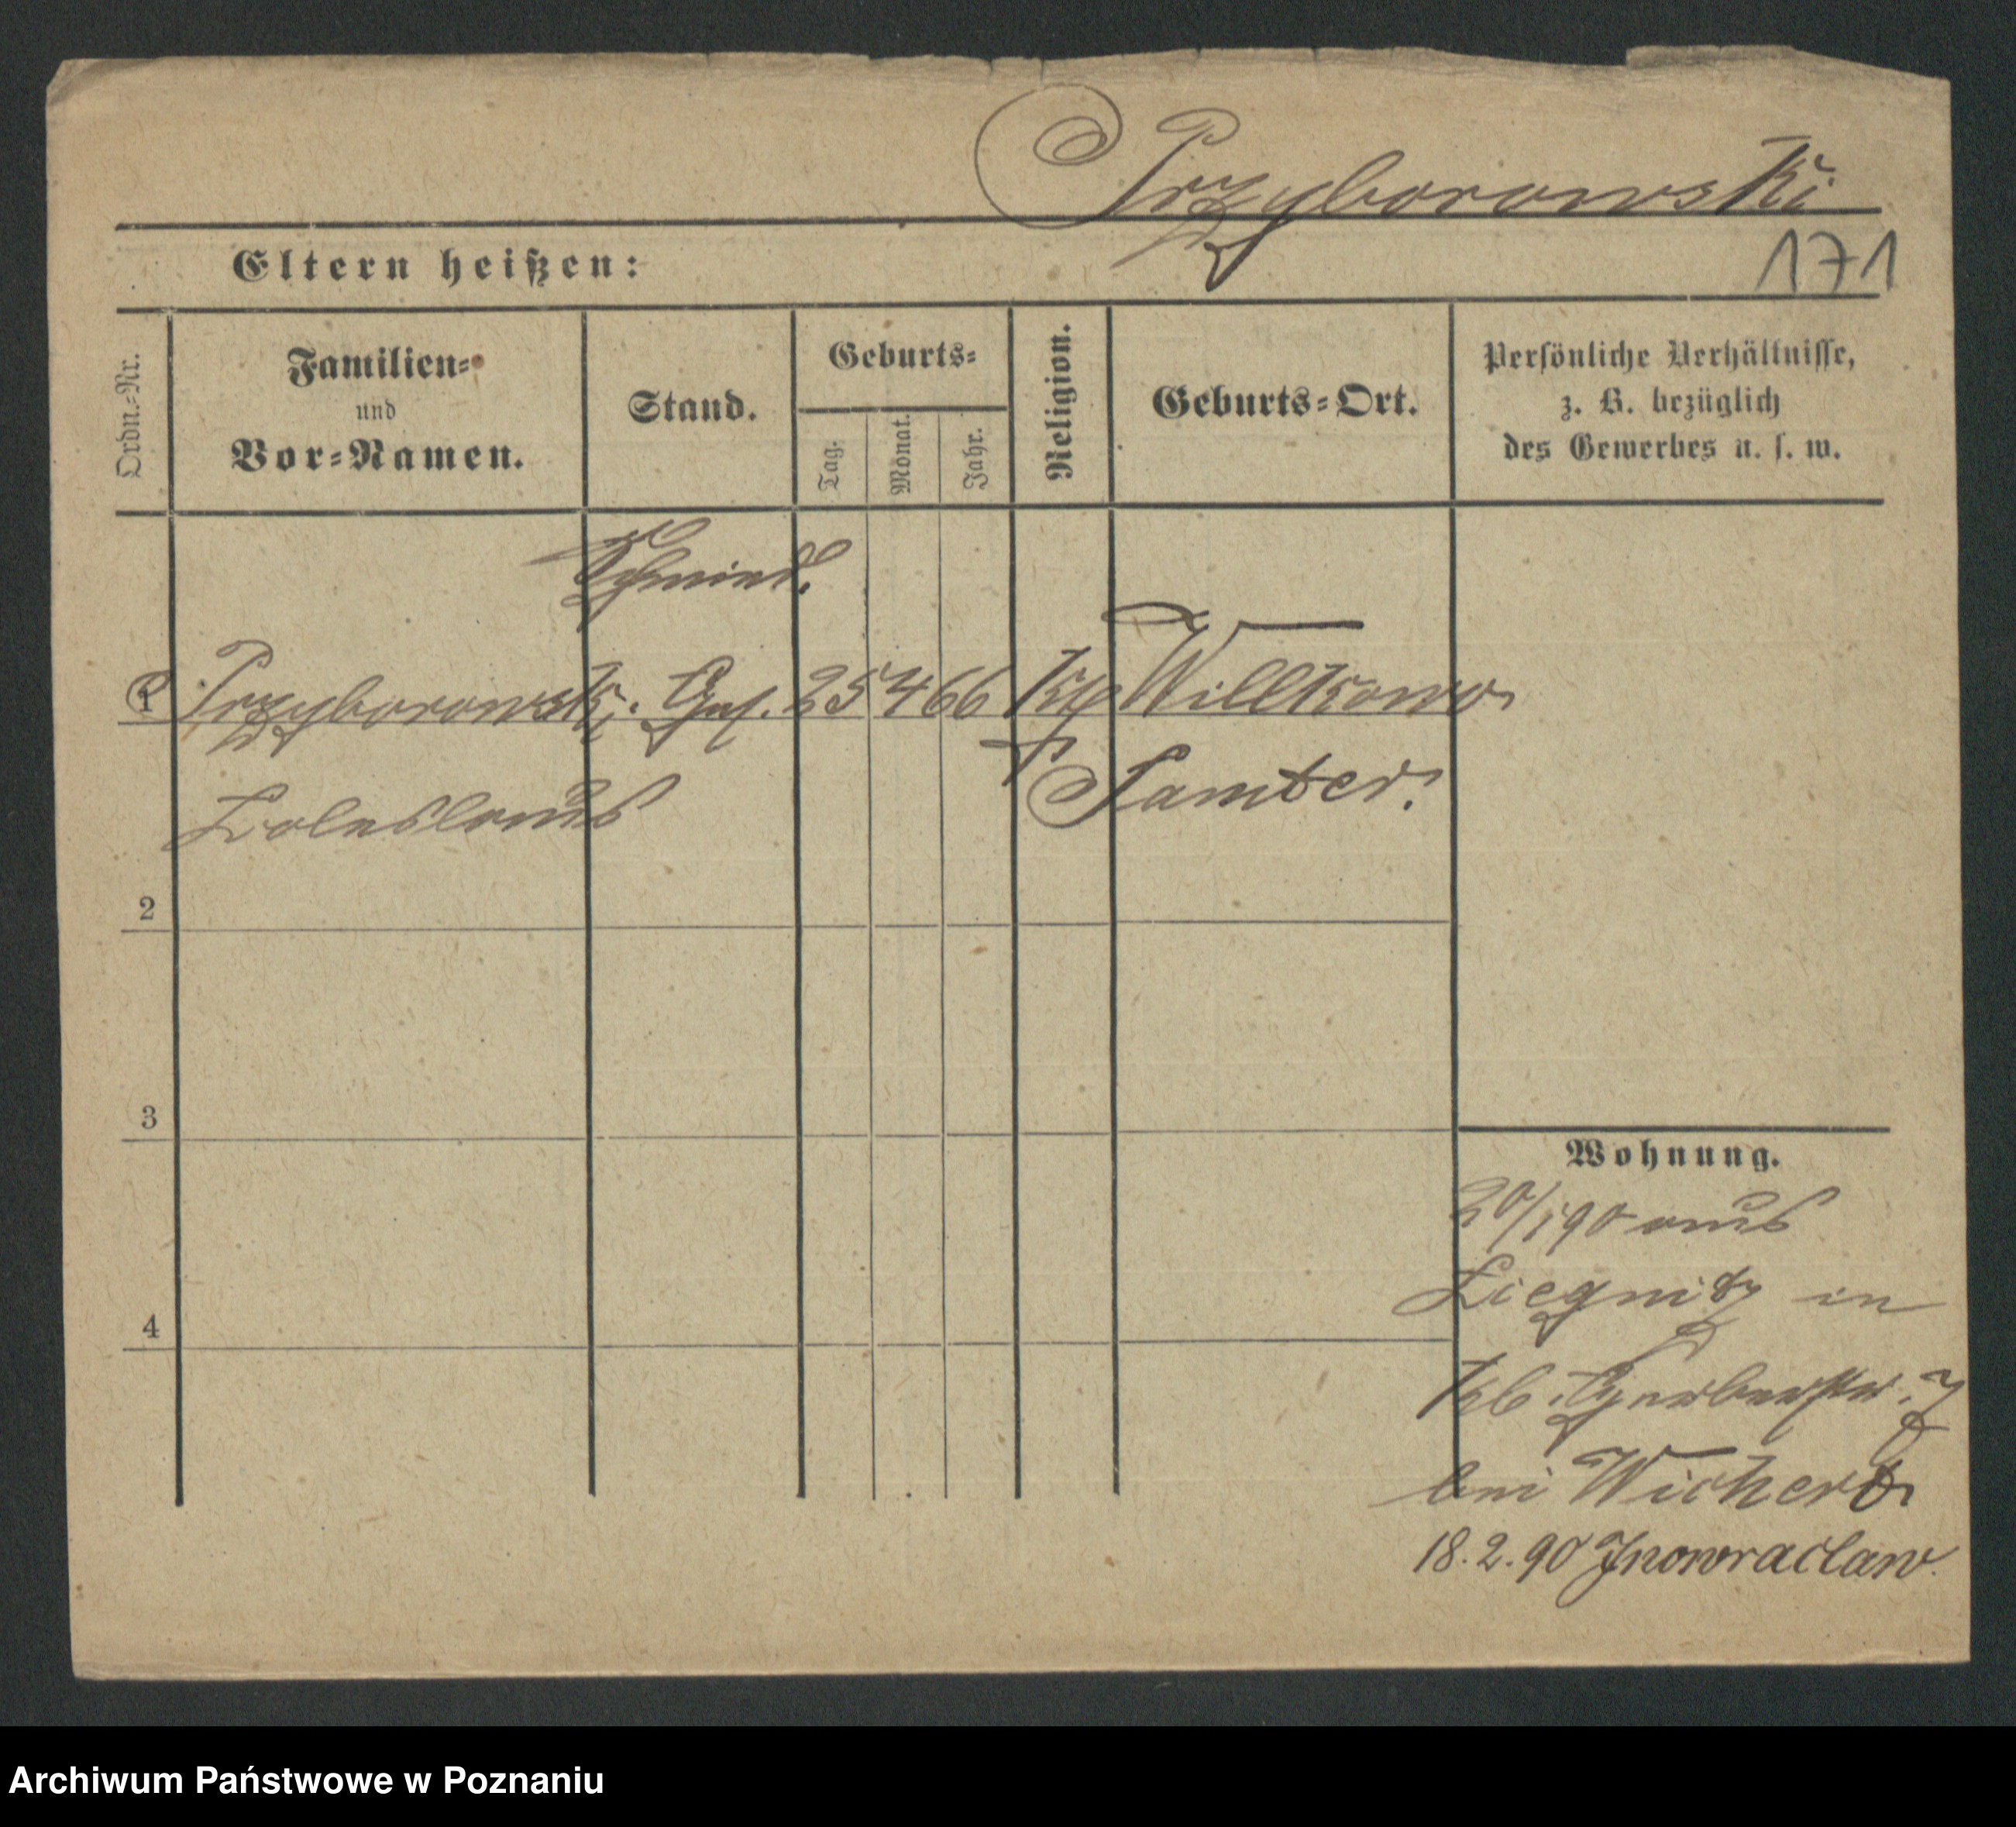 Przyborowski
171
Eltern heißen:
Ordn.-Nr.
Familien-
und
Vor-Namen.
Stand.
Geburts-
Tag.
Monat.
Jahr.
Religion.
Geburts-Ort.
Persönliche Verhältnisse,
z. B. bezüglich
des Gewerbes u. s. w.
Schmied.
1 Przyborowski Ges. 25 4 66 Willkowo
Boleslaus Samter.
2
3
4
Wohnung.
20/1 90 aus
Liegnitz in
Gerberstr. 7
bei Wichert
18.2.90 Inowraclaw.
Archiwum Państwowe w Poznaniu